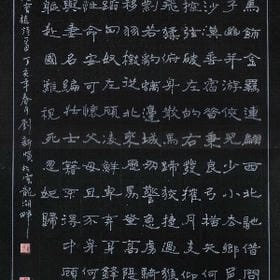 馬飾金羈連翩西北馳借問
子幽并遊俠兒少小去鄉邑
沙漠垂宿昔秉良弓楛矢何
控弦破左的右發摧月支仰
飛猱俯身散馬蹄狡捷過猴
剽若豹螭邊城多警急虜騎
移羽檄從北來厲馬登高堤
蹈匈奴左顧凌鮮卑棄身鋒
性命安可懷父母且不顧何
與妻名編壯士籍不得中顧
軀赴國難視死忽如歸
植詩 丁亥年春月劉新德於雲龍湖畔